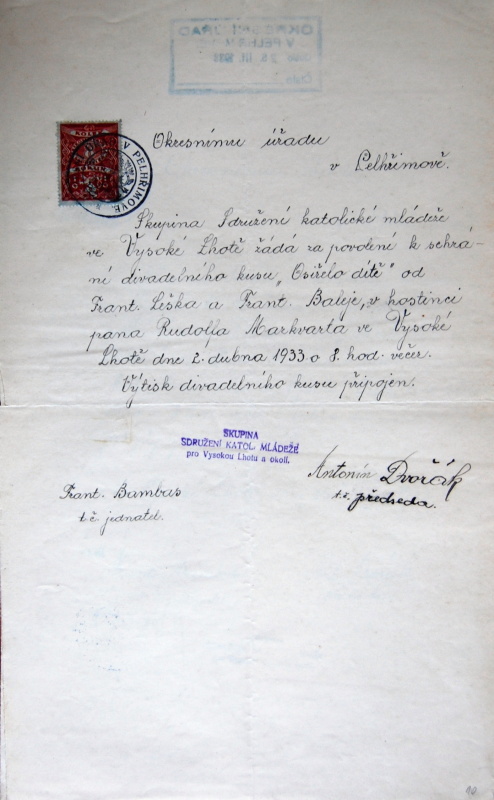 OKRESNÍ ÚŘAD
V PELHŘIMOVĚ
Okresnímu úřadu
v Pelhřimově.
V PELHŘIMOVĚ
Skupina Sdružení katolické mládeže
ve Vysoké Lhotě žádá za povolení k sehrá-
ní divadelního kusu „Osiřelo dítě" od
Frant. Leška a Frant. Baleje, v hostinci
pana Rudolfa Markvarta ve Vysoké
Lhotě dne 2. dubna 1933 o 8. hod. večer.
Výtisk divadelního kusu připojen.
SKUPINA
SDRUŽENÍ KATOL. MLÁDEŽE
pro Vysokou Lhotu a okolí.
Antonín Dvořák
t. č. předseda.
Frant. Bambas
t. č. jednatel.